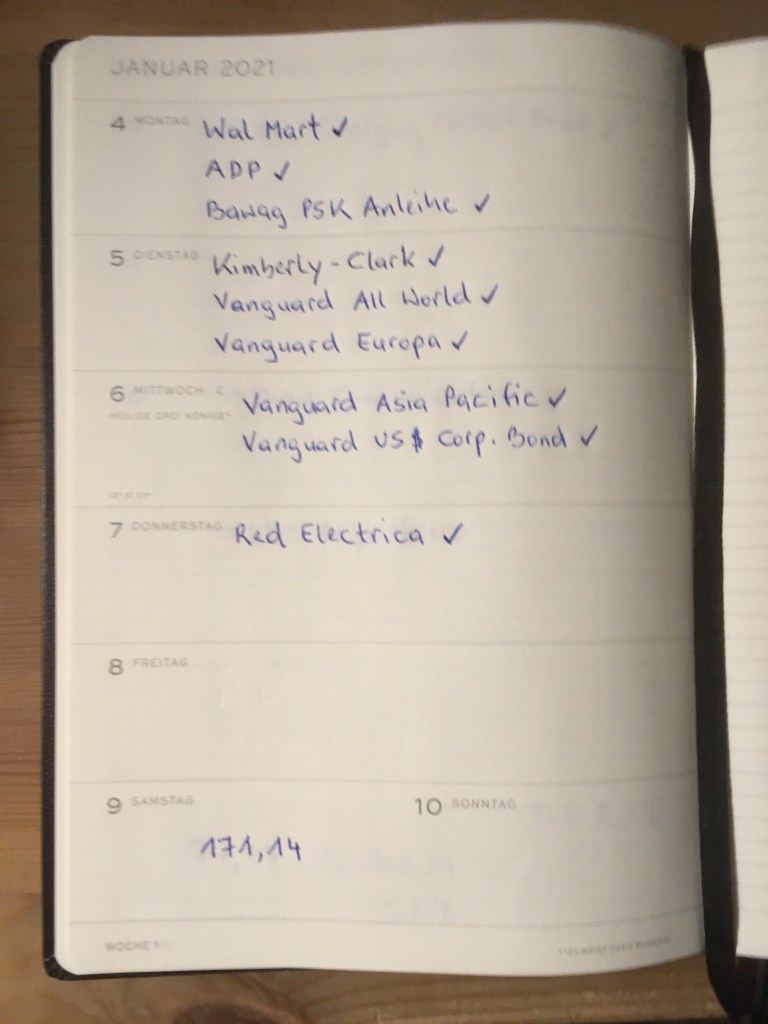 JANUAR 2021
4 MONTAG Wal Mart ✓
ADP ✓
Bawag PSK Anleihe ✓
5 DIENSTAG Kimberly-Clark ✓
Vanguard All World ✓
Vanguard Europa ✓
6 MITTWOCH ☾ Vanguard Asia Pacific ✓
HEILIGE DREI KÖNIGE*
Vanguard US$ Corp. Bond ✓
7 DONNERSTAG Red Electrica ✓
8 FREITAG
9 SAMSTAG 10 SONNTAG
171,14
WOCHE 1